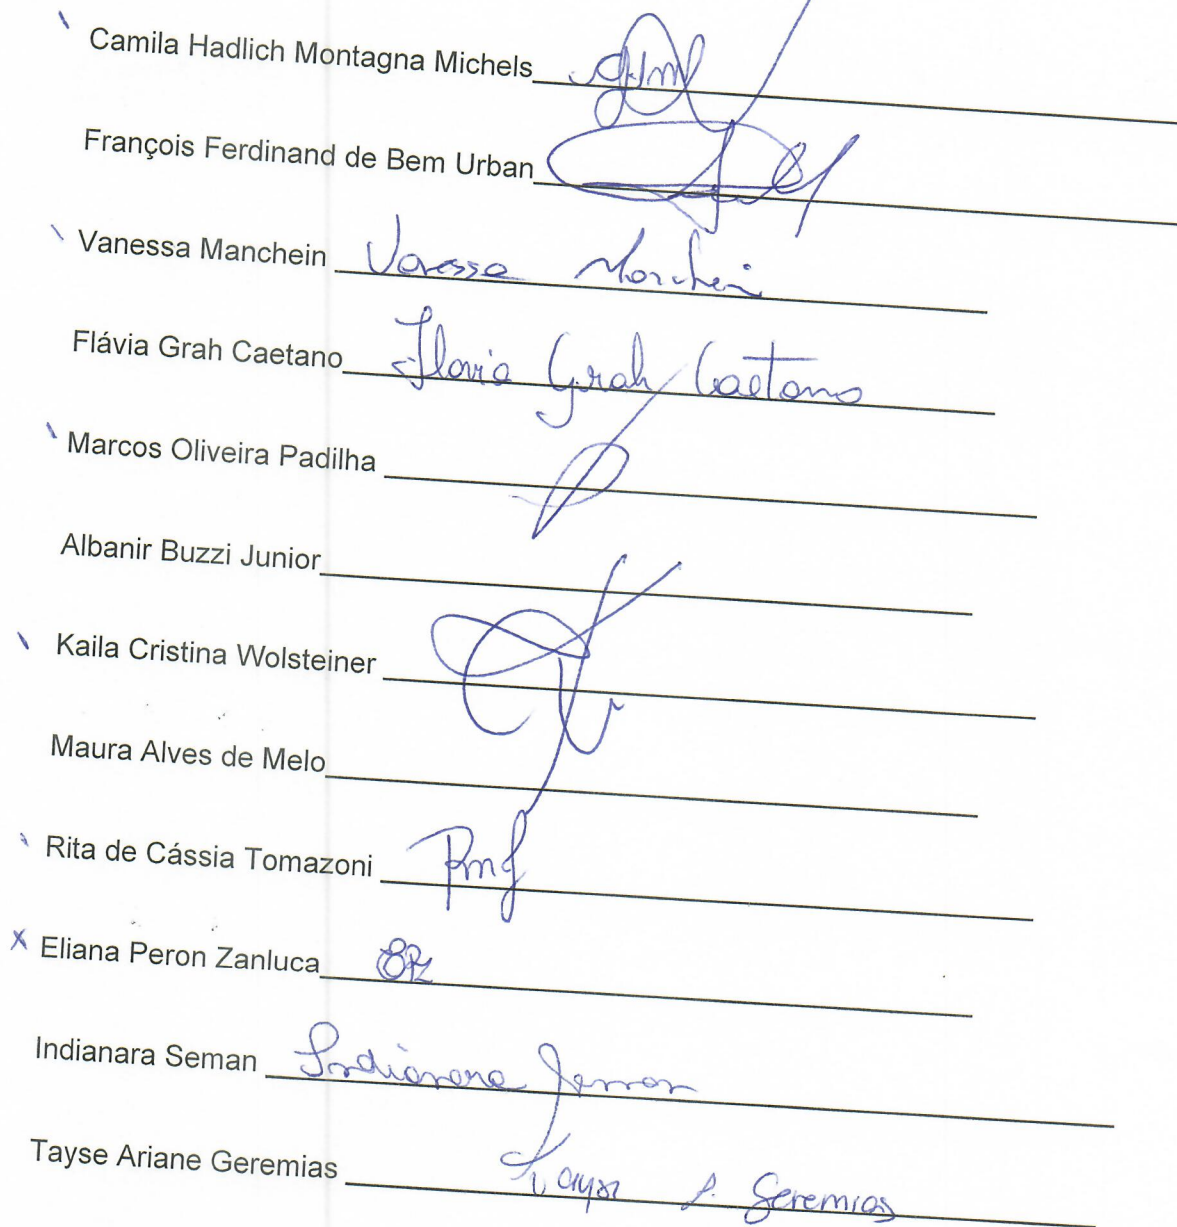 Camila Hadlich Montagna Michels
François Ferdinand de Bem Urban
Vanessa Manchein Vanessa Manchein
Flávia Grah Caetano Flavia Grah Caetano
Marcos Oliveira Padilha
Albanir Buzzi Junior
Kaila Cristina Wolsteiner
Maura Alves de Melo
Rita de Cássia Tomazoni
X Eliana Peron Zanluca EPZ
Indianara Seman Indianara Seman
Tayse Ariane Geremias Tayse A. Geremias